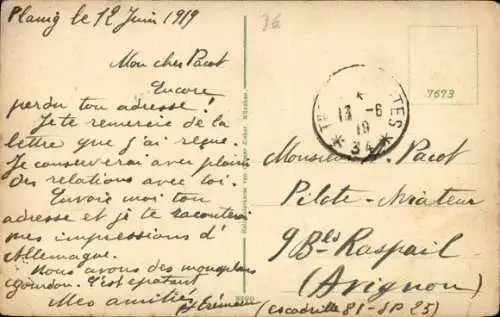 Planig le 12 Juin 1919
36
Mon cher Pacot
Encore
perdu ton adresse !
Je te remercie de la
lettre que j'ai reçue.
Je conserverai avec plaisir
des relations avec toi.
Envoie moi ton
adresse et je te raconterai
mes impressions d'
Allemagne.
Nous avons des monoplans
gourdon. C'est épatant
Mes amitiés
7673
13 -6
19
* 34 *
Monsieur Pacot
Pilote-Aviateur
9 Bld Raspail
(Avignon)
(escadrille 81-SP 25)